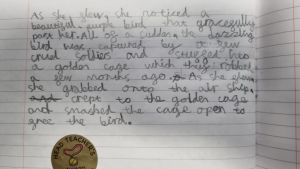 As she flew, she noticed a
beautiful purple bird that gracefully
past her. All of a sudden, the dazzling
bird was captured by a few
cruel soldiers and shoved into
a golden cage which they robbed
a few months ago. As she flew
she grabbed onto the air ship.
crept to the golden cage
and smashed the cage open to
free the bird.
HEAD TEACHER'S